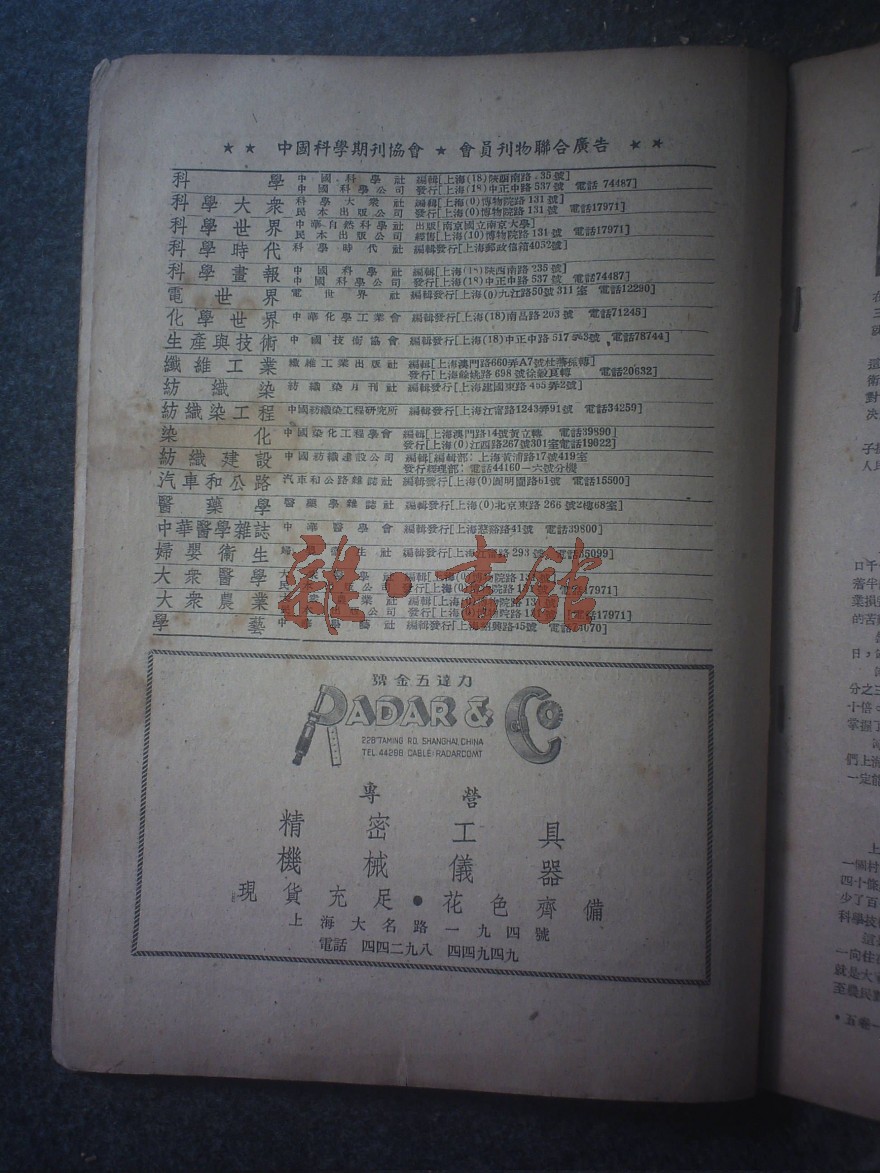 ★ ★ 中國科學期刊協會 ★ 會員刊物聯合廣告 ★ ★
科學 中國科學社 編輯[上海(18)陝西南路235號]
中國科學公司 發行[上海(18)中正中路537號 電話74487]
科學大衆 科學大衆社 編輯[上海(0)博物院路131號]
民本出版公司 發行[上海(0)博物院路131號 電話17971]
科學世界 中華自然科學社 出版[南京國立南京大學]
民本出版公司 經售[上海(10)博物院路131號 電話17971]
科學時代 科學時代社 編輯發行[上海郵政信箱4052號]
科學畫報 中國科學社 編輯[上海(18)陝西南路235號]
中國科學公司 發行[上海(18)中正中路537號 電話74487]
電世界 電世界社 編輯發行[上海(0)九江路50號311室 電話12290]
化學世界 中華化學工業會 編輯發行[上海(18)南昌路203號 電話71245]
生產與技術 中國技術協會 編輯發行[上海(18)中正中路517弄3號 電話78744]
纖維工業 纖維工業出版社 編輯[上海澳門路660弄A7號杜燕孫轉]
發行[上海餘姚路698號徐毅良轉 電話20632]
紡織染 紡織染月刊社 編輯發行[上海建國東路455弄2號]
紡織染工程 中國紡織染工程研究所 編輯發行[上海江甯路1243弄91號 電話34259]
染化 中國染化工程學會 編輯[上海澳門路14號黃立轉 電話39890]
發行[上海(0)江西路267號301室電話19022]
紡織建設 中國紡織建設公司 編輯[編輯部:上海黃浦路17號419室
發行經理部:電話44160—六號分機
汽車和公路 汽車和公路雜誌社 編輯發行[上海(0)圓明園路61號 電話15500]
醫藥學 醫藥學雜誌社 編輯發行[上海(0)北京東路266號2樓68室]
中華醫學雜誌 中華醫學會 編輯發行[上海慈谿路41號 電話39800]
婦嬰衛生 生社 編輯發行[上海江甯路293號 電話35099]
大衆醫學 學社 編輯[上海(0)博物院路131號]
公司 發行[上海(0)博物院路131號 電話17971]
大衆農業 業社 編輯[上海(0)博物院路131號]
公司 發行[上海(0)博物院路131號 電話17971]
學藝 藝社 編輯發行[上海紹興路45號
雜·書館
力達五金號
RADAR & Co
228 TAMING RD. SHANGHAI, CHINA
TEL 44298 CABLE: RADARCOMT
專營
精密工具
機械儀器
現貨充足·花色齊備
上海大名路一九四號
電話 四四二九八 四四九四九
口千
著半
業損
的苦
日,
分之三
十倍。
掌握了
們上海
一定能
對
決
子
人民
上
一個村
四十億
少了百
科學技
一向往
就是大
至農民
·五卷一